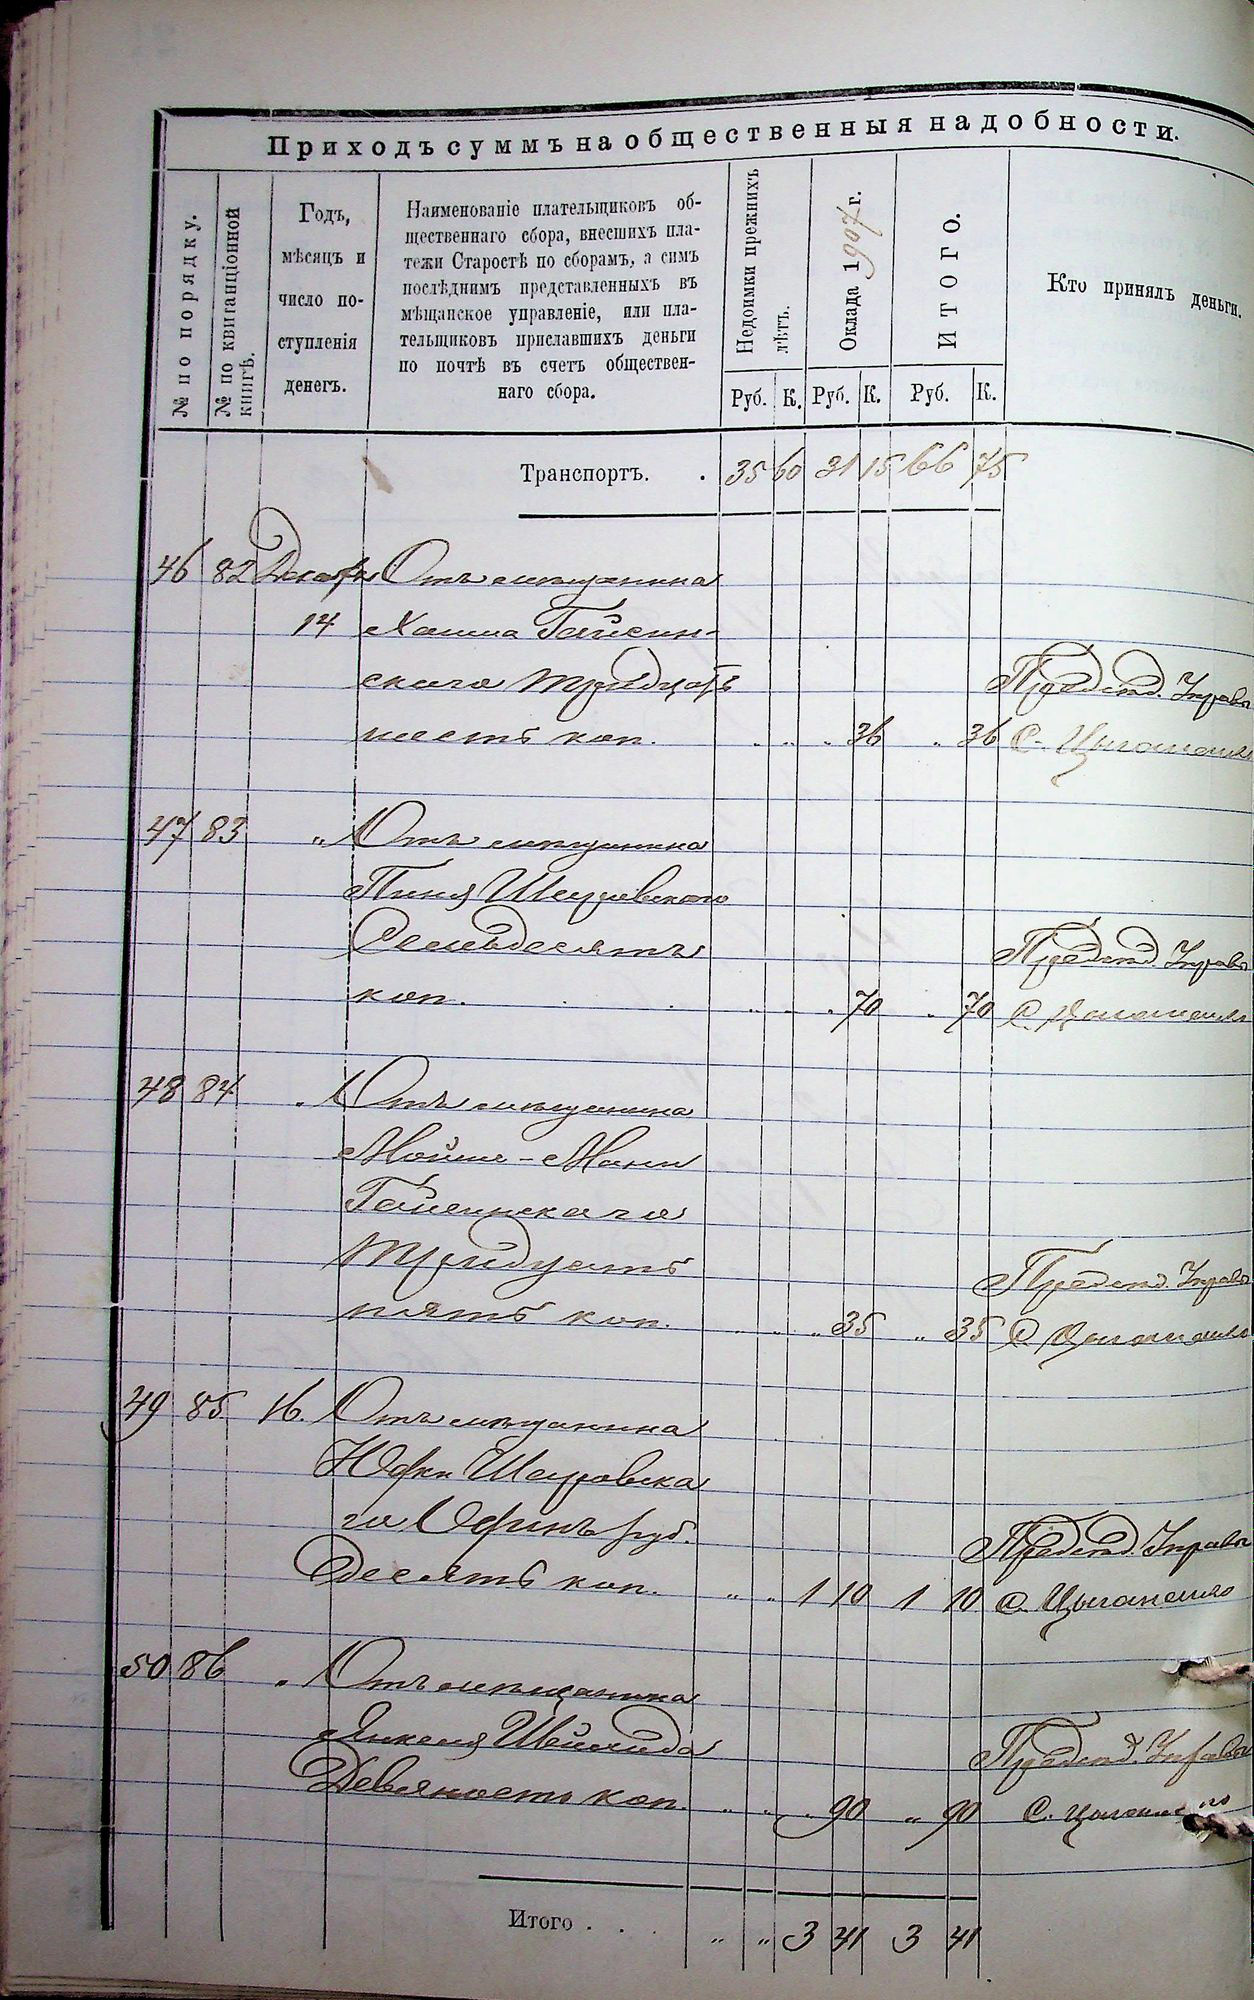 Приходъ суммъ на общественныя надобности.
№ по порядку.
№ по квитанціонной книгѣ.
Годъ,
мѣсяцъ и
число по-
ступленія
денегъ.
Наименованіе плательщиковъ об-
щественнаго сбора, внесшихъ пла-
тежи Старостѣ по сборамъ, а симъ
послѣднимъ представленныхъ въ
мѣщанское управленіе, или пла-
тельщиковъ приславшихъ деньги
по почтѣ въ счетъ обществен-
наго сбора.
Недоимки прежнихъ лѣтъ.
Оклада 1907 г.
Итого.
Кто принялъ деньги.
Руб. К. Руб. К. Руб. К.
Транспортъ. . 35 60 31 15 66 75
46 82 Декабря Отъ мѣщанина
14 Хаима Гайсин-
скаго тридцать
шесть коп. . " " 36 " 36
Председ. Управы
С. Цыганенко
47 83 " Отъ мѣщанина
Пиня
Семьдесятъ
коп. . . . " " " 70 " 70
Председ. Управы
С. Цыганенко
48 84 " Отъ мѣщанина
Мойше-Мани
Гайсинскаго
тридцать
пять коп. " " " 35 " 35
Председ. Управы
С. Цыганенко
49 85 16. Отъ мѣщанина
го Одинъ руб.
Десять коп. " " 1 10 1 10
Председ. Управы
С. Цыганенко
50 86 " Отъ мѣщанина
Янкеля
Девяносто коп. " " " 90 " 90
Председ. Управы
С. Цыганенко
Итого . . . " " 3 41 3 41